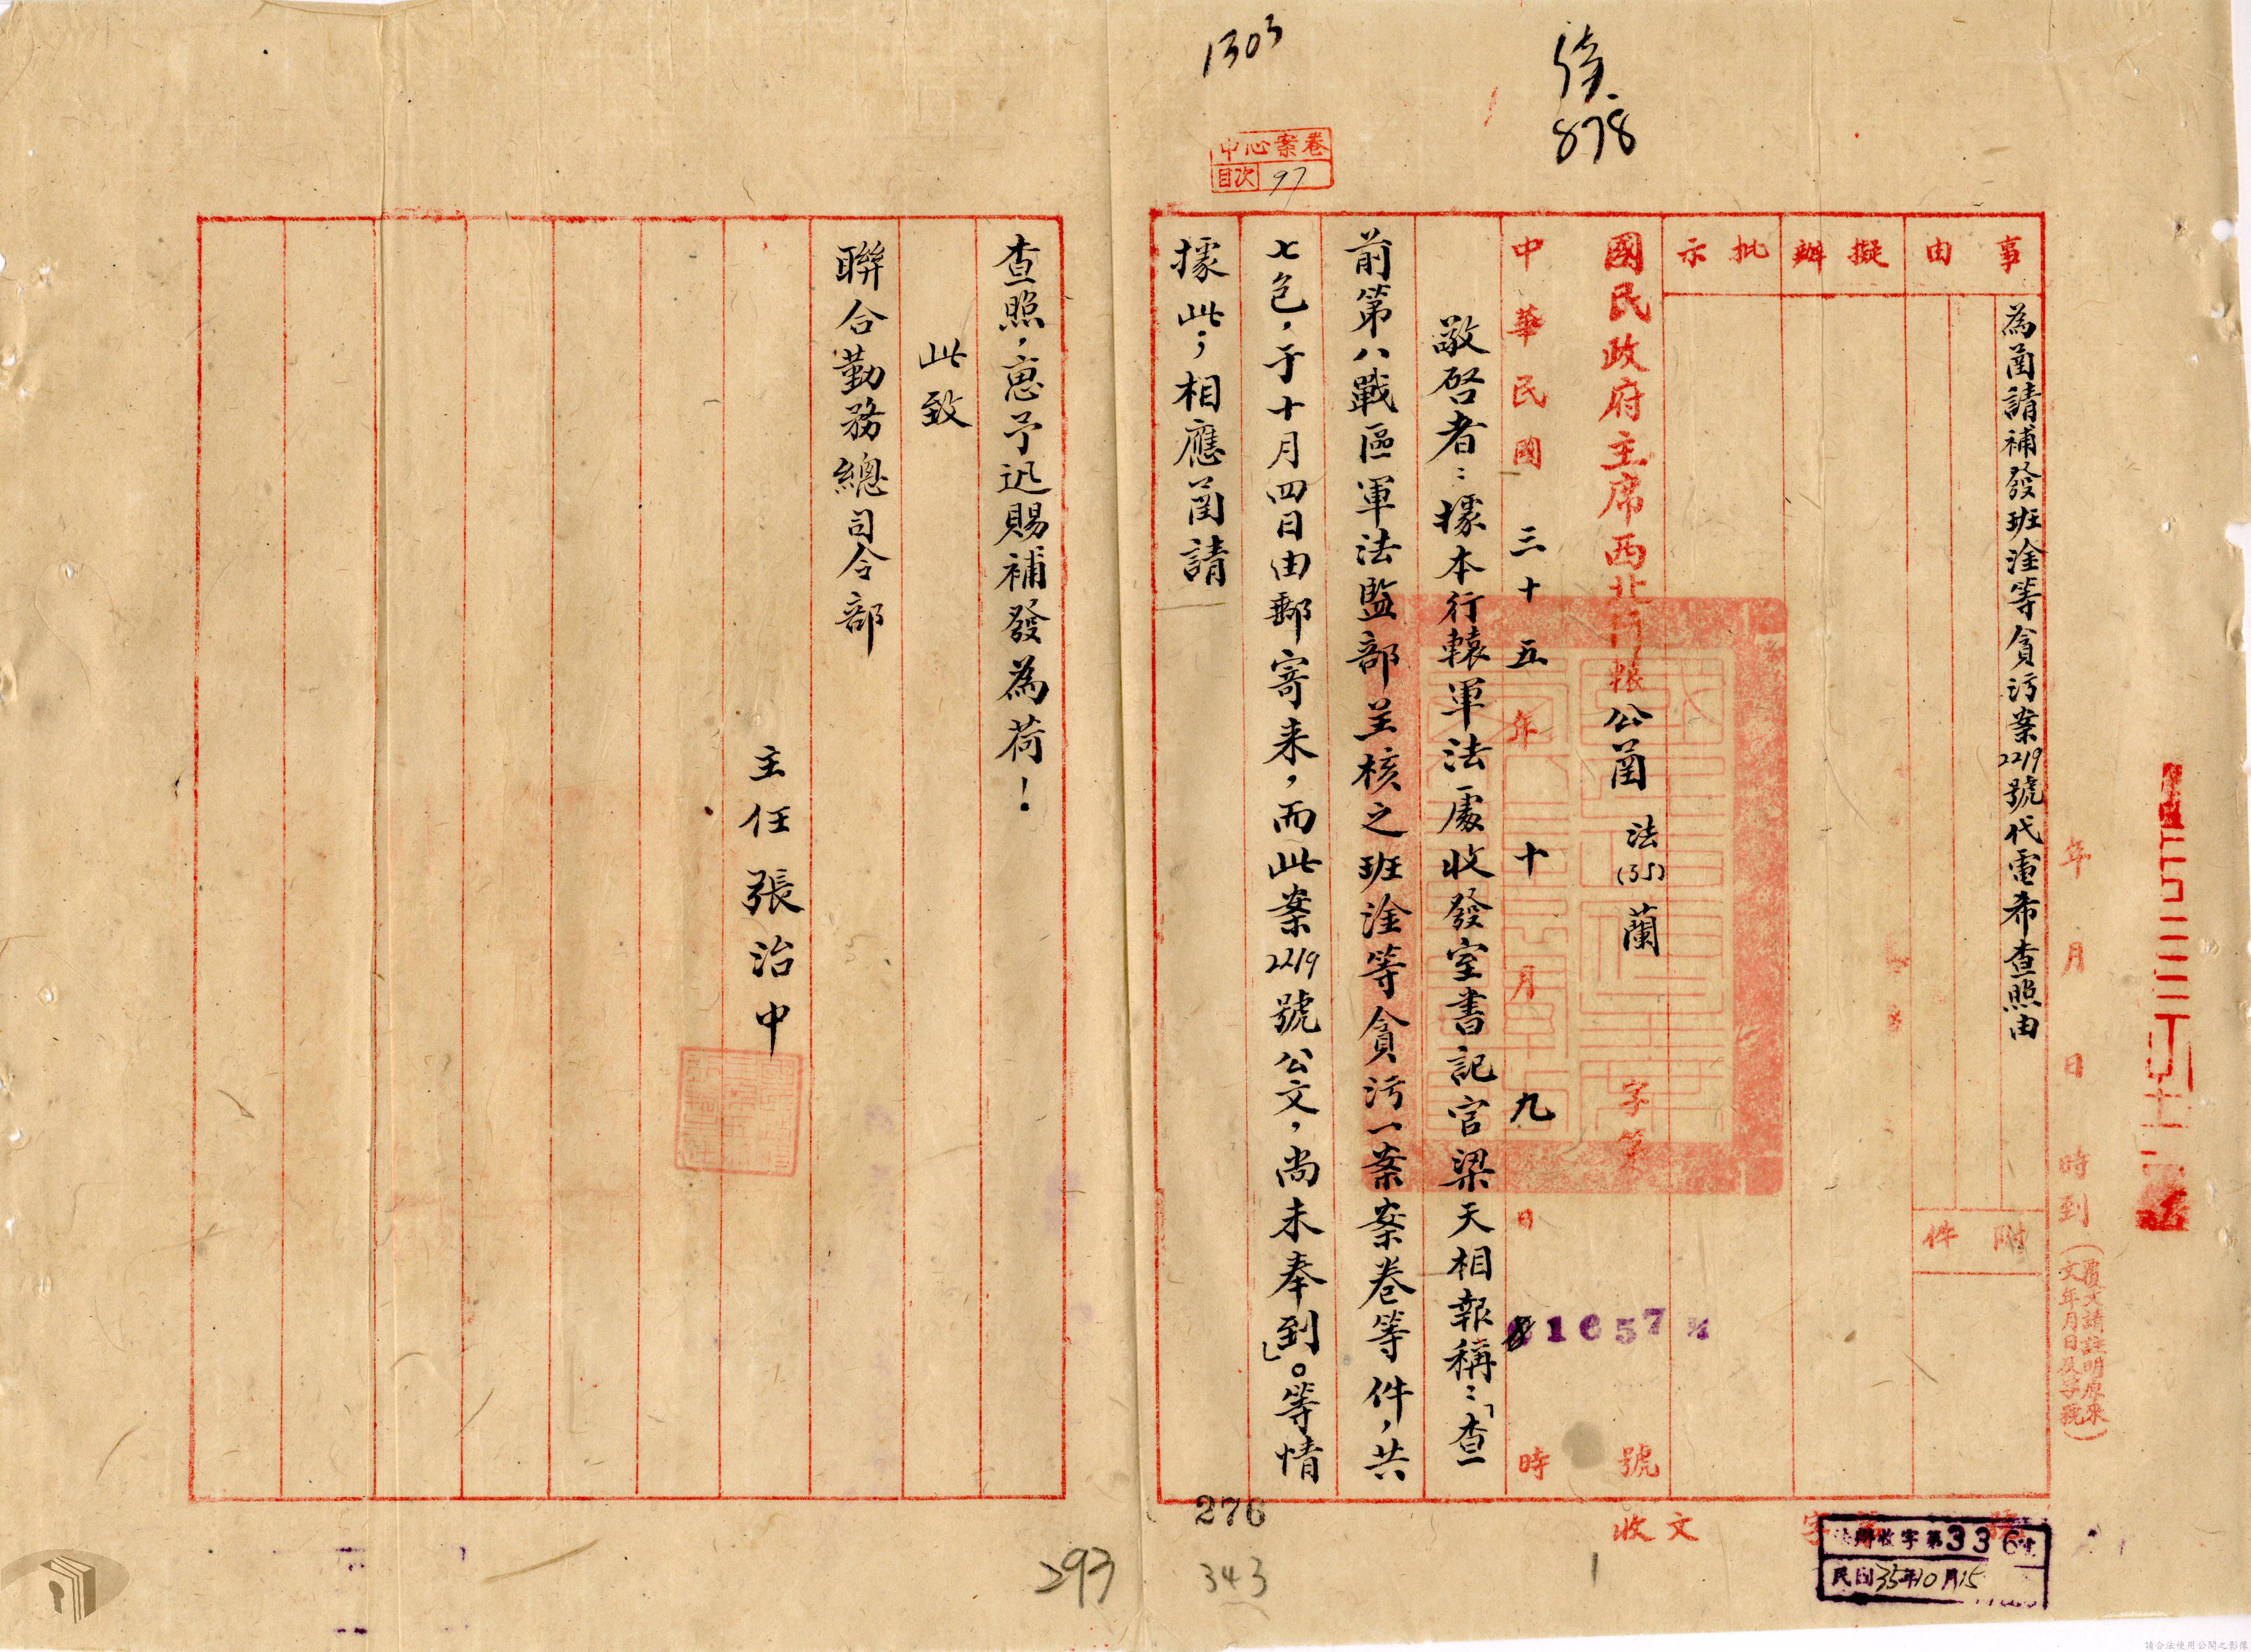 1303
878
中心案卷
目次 97
事由
為菌請補發班淦等貪污案2219號代電希查照由
擬辦
批示
附件
年 月 日 時到
(覆文請註明原來文年月日及字號)
國民政府主席西北行轅公函 法(35)蘭 字第 號
1657
中華民國三十五年十月九日 時
敬啓者：據本行轅軍法處收發室書記官梁天相報稱：「查
前第八戰區軍法監部呈核之班淦等貪污一案案卷等件，共
七包，于十月四日由郵寄来，而此案2219號公文，尚未奉到」。等情
據此；相應函請
查照，惠予迅賜補發為荷！
此致
聯合勤務總司令部
主任 張治中
收文 字
收字第336
民國35年10月15
276
343
293
1
請合法使用公開之影像